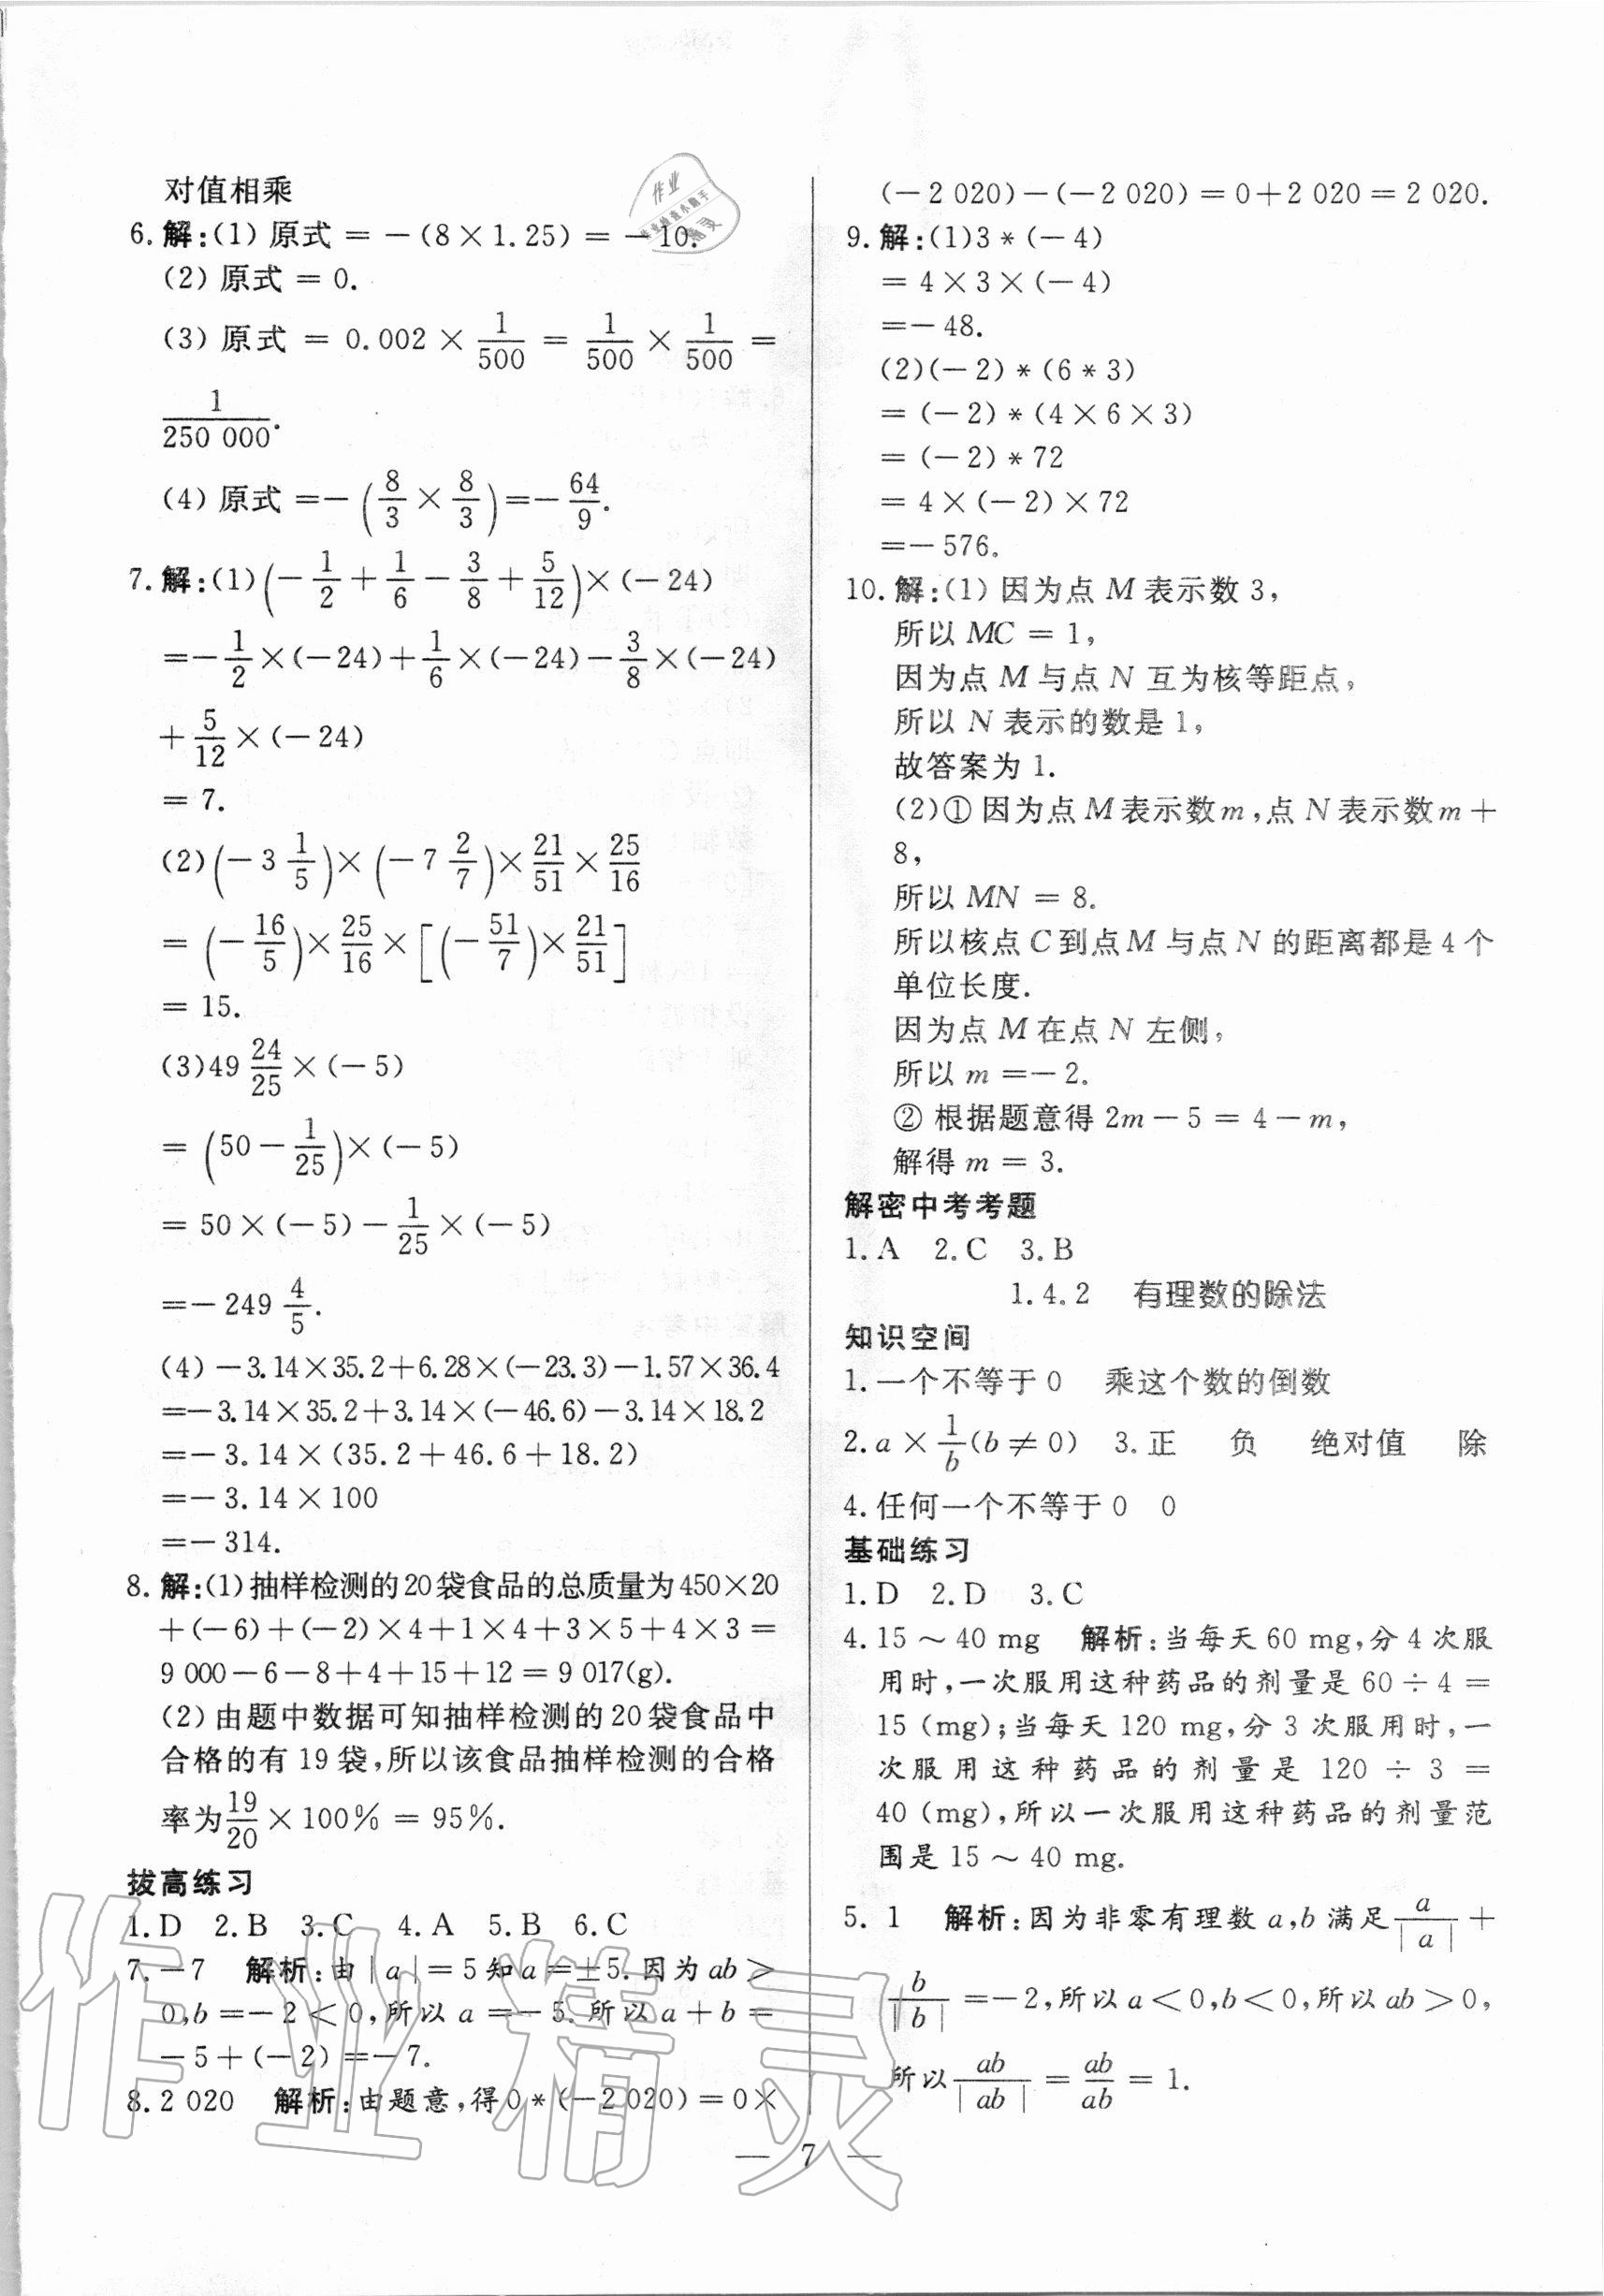 对值相乘
6. 解:(1) 原式 = -(8×1.25) = -10.
(2) 原式 = 0.
(3) 原式 = 0.002 × 1/500 = 1/500 × 1/500 =
1/250 000.
(4) 原式 =-(8/3 × 8/3)=-64/9.
7. 解:(1)(-1/2+1/6-3/8+5/12)×(-24)
=-1/2×(-24)+1/6×(-24)-3/8×(-24)
+5/12×(-24)
= 7.
(2)(-3 1/5)×(-7 2/7)×21/51×25/16
= (-16/5)×25/16×[(-51/7)×21/51]
= 15.
(3)49 24/25×(-5)
= (50-1/25)×(-5)
= 50×(-5)-1/25×(-5)
=-249 4/5.
(4)-3.14×35.2+6.28×(-23.3)-1.57×36.4
=-3.14×35.2+3.14×(-46.6)-3.14×18.2
=-3.14×(35.2+46.6+18.2)
=-3.14×100
=-314.
8. 解:(1)抽样检测的20袋食品的总质量为450×20
+(-6)+(-2)×4+1×4+3×5+4×3 =
9 000-6-8+4+15+12 = 9 017(g).
(2)由题中数据可知抽样检测的20袋食品中
合格的有19袋,所以该食品抽样检测的合格
率为19/20×100% = 95%.
拔高练习
1. D 2. B 3. C 4. A 5. B 6. C
7. -7 解析:由|a|=5知a=±5.因为ab>
0,b=-2<0,所以a=-5.所以a+b=
-5+(-2)=-7.
8. 2 020 解析:由题意,得0*(-2 020)=0×
(-2 020)-(-2 020)=0+2 020=2 020.
9. 解:(1)3*(-4)
= 4×3×(-4)
=-48.
(2)(-2)*(6*3)
= (-2)*(4×6×3)
= (-2)*72
= 4×(-2)×72
=-576.
10. 解:(1) 因为点M表示数3,
所以MC = 1,
因为点M与点N互为核等距点,
所以N表示的数是1,
故答案为1.
(2)①因为点M表示数m,点N表示数m+
8,
所以MN = 8.
所以核点C到点M与点N的距离都是4个
单位长度.
因为点M在点N左侧,
所以m=-2.
②根据题意得2m-5=4-m,
解得m = 3.
解密中考考题
1. A 2. C 3. B
1.4.2 有理数的除法
知识空间
1. 一个不等于0 乘这个数的倒数
2. a×1/b(b≠0) 3. 正 负 绝对值 除
4. 任何一个不等于0 0
基础练习
1. D 2. D 3. C
4. 15～40 mg 解析:当每天60 mg,分4次服
用时,一次服用这种药品的剂量是60÷4=
15 (mg);当每天120 mg,分3次服用时,一
次服用这种药品的剂量是120÷3=
40 (mg),所以一次服用这种药品的剂量范
围是15～40 mg.
5. 1 解析:因为非零有理数a,b满足a/|a|+
b/|b|=-2,所以a<0,b<0,所以ab>0,
所以ab/|ab|=ab/ab=1.
— 7 —
作业精灵